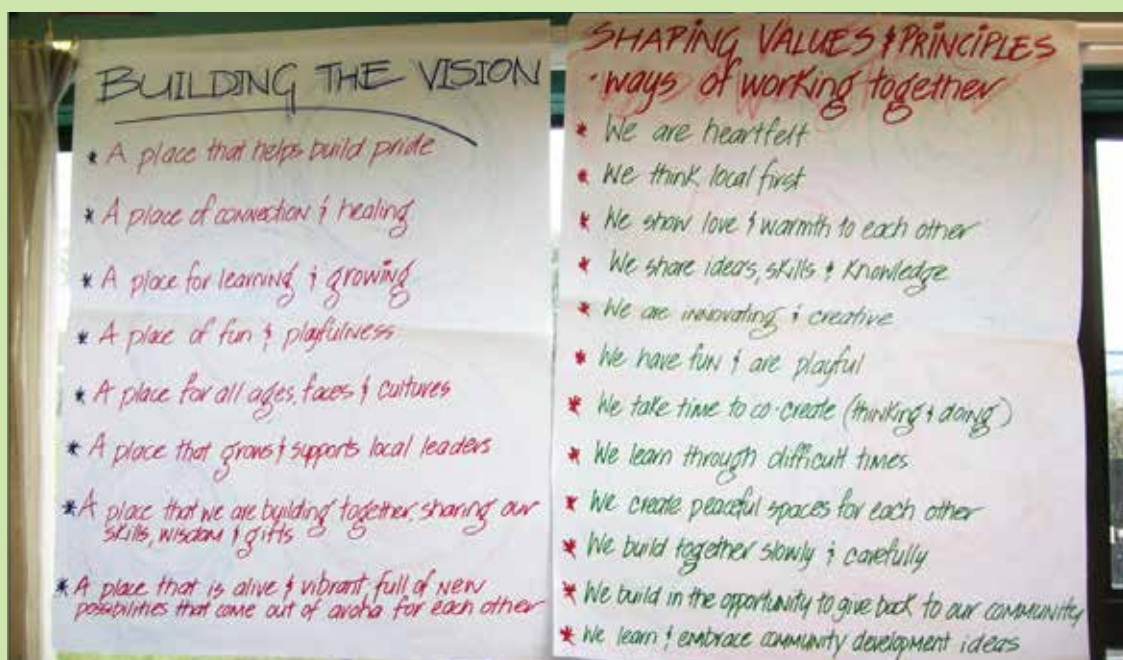 BUILDING THE VISION
* A place that helps build pride
* A place of connection & healing
* A place for learning & growing
* A place of fun & playfulness
* A place for all ages, faces & cultures
* A place that grows & supports local leaders
* A place that we are building together, sharing our
skills, wisdom & gifts
* A place that is alive & vibrant, full of new
possibilities that come out of aroha for each other
SHAPING VALUES & PRINCIPLES
· ways of working together
* We are heartfelt
* We think local first
* We show love & warmth to each other
* We share ideas, skills & knowledge
* We are innovating & creative
* We have fun & are playful
* We take time to co-create (thinking & doing)
* We learn through difficult times
* We create peaceful spaces for each other
* We build together slowly & carefully
* We build in the opportunity to give back to our community
* We learn & embrace community development ideas